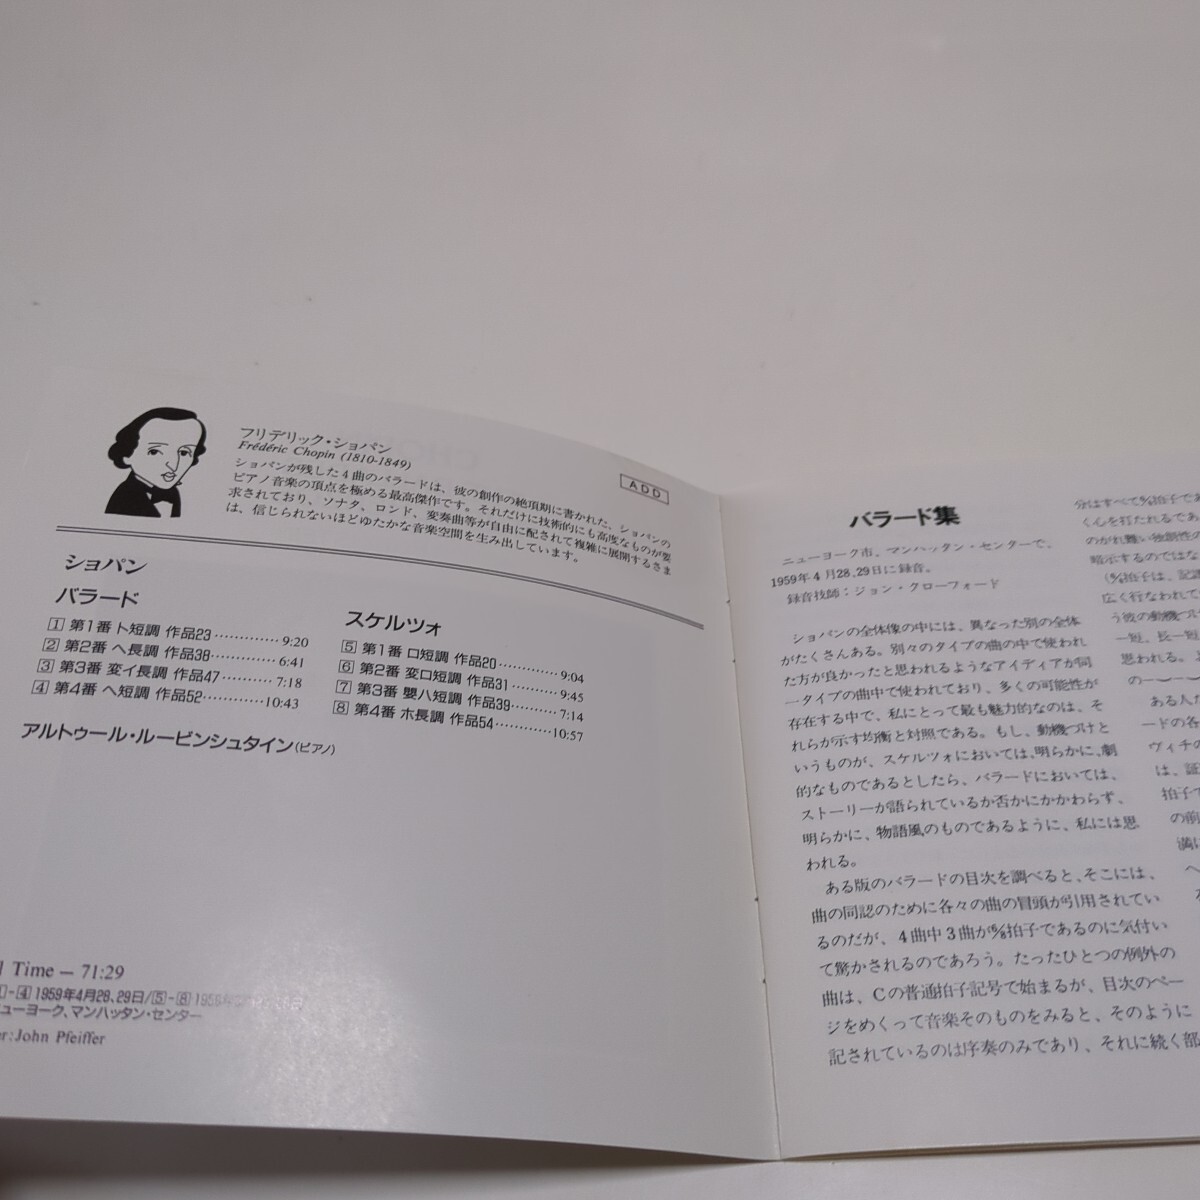 フリデリック・ショパン
Frédéric Chopin (1810-1849)
ショパンが残した4曲のバラードは、彼の創作の絶頂期に書かれた、ショパンの
ピアノ音楽の頂点を極める最高傑作です。それだけに技術的にも高度なものが要
求されており、ソナタ、ロンド、変奏曲等が自由に配されて複雑に展開するさま
は、信じられないほどゆたかな音楽空間を生み出しています。
ADD
ショパン
バラード
1 第1番 ト短調 作品23 ............. 9:20
2 第2番 ヘ長調 作品38 ............. 6:41
3 第3番 変イ長調 作品47 .......... 7:18
4 第4番 ヘ短調 作品52 ............. 10:43
スケルツォ
5 第1番 ロ短調 作品20 ............ 9:04
6 第2番 変ロ短調 作品31 .......... 9:45
7 第3番 嬰ハ短調 作品39 .......... 7:14
8 第4番 ホ長調 作品54 ............ 10:57
アルトゥール・ルービンシュタイン(ピアノ)
l Time — 71:29
-4 1959年4月28、29日/5-8
ューヨーク、マンハッタン・センター
er:John Pfeiffer
バラード集
ニューヨーク市、マンハッタン・センターで、
1959年4月28、29日に録音。
録音技師:ジョン・クローフォード
ショパンの全体像の中には、異なった別の全体
がたくさんある。別々のタイプの曲の中で使われ
た方が良かったと思われるようなアイディアが同
一タイプの曲中で使われており、多くの可能性が
存在する中で、私にとって最も魅力的なのは、そ
れらが示す均衡と対照である。もし、動機づけと
いうものが、スケルツォにおいては、明らかに、劇
的なものであるとしたら、バラードにおいては、
ストーリーが語られているか否かにかかわらず、
明らかに、物語風のものであるように、私には思
われる。
ある版のバラードの目次を調べると、そこには、
曲の同認のために各々の曲の冒頭が引用されてい
るのだが、4曲中3曲が6/8拍子であるのに気付い
て驚かされるのであろう。たったひとつの例外の
曲は、Cの普通拍子記号で始まるが、目次のペー
ジをめくって音楽そのものをみると、そのように
記されているのは序奏のみであり、それに続く部
分はすべて6/4拍子であ
く心を打たれるであ
のがれ難い独創性の
暗示するのではな
(6/4拍子は、記譜
広く行なわれて
う彼の動機づけ
一短、長一短
思われる。
の一〜一〜
ある人だ
ードの各
ヴィチの
は、証
拍子で
の前
満に
へ